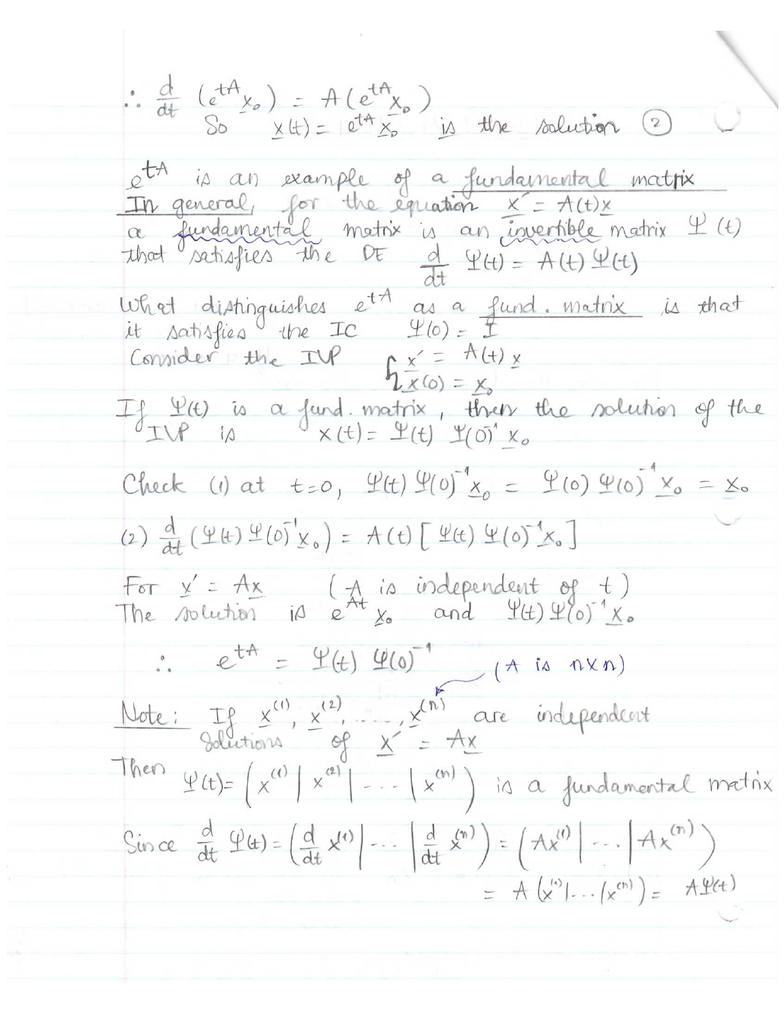 ∴ d/dt (e^{tA} x₀) = A(e^{tA} x₀)
So x(t) = e^{tA} x₀ is the solution ②
e^{tA} is an example of a fundamental matrix
In general, for the equation x' = A(t)x
a fundamental matrix is an invertible matrix Ψ(t)
that satisfies the DE d/dt Ψ(t) = A(t) Ψ(t)
What distinguishes e^{tA} as a fund. matrix is that
it satisfies the IC Ψ(0) = I
Consider the IVP { x' = A(t) x
x(0) = x₀
If Ψ(t) is a fund. matrix, then the solution of the
IVP is x(t) = Ψ(t) Ψ(0)⁻¹ x₀
Check (1) at t=0, Ψ(t) Ψ(0)⁻¹ x₀ = Ψ(0) Ψ(0)⁻¹ x₀ = x₀
(2) d/dt (Ψ(t) Ψ(0)⁻¹ x₀) = A(t) [ Ψ(t) Ψ(0)⁻¹ x₀ ]
For x' = Ax (A is independent of t)
The solution is e^{At} x₀ and Ψ(t) Ψ(0)⁻¹ x₀
∴ e^{tA} = Ψ(t) Ψ(0)⁻¹
(A is n×n)
Note: If x^{(1)}, x^{(2)}, ....., x^{(n)} are independent
solutions of x' = Ax
Then Ψ(t) = ( x^{(1)} | x^{(2)} | --- | x^{(n)} ) is a fundamental matrix
Since d/dt Ψ(t) = ( d/dt x^{(1)} | --- | d/dt x^{(n)} ) = ( Ax^{(1)} | --- | Ax^{(n)} )
= A (x^{(1)} | --- | x^{(n)}) = AΨ(t)